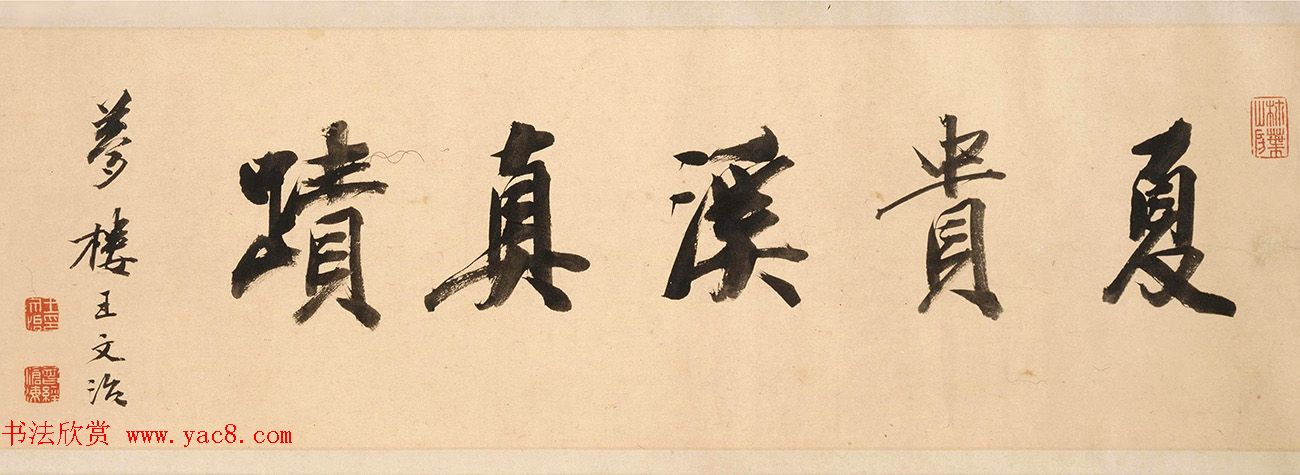 夏貴溪真蹟
夢樓王文治
曾經滄海
书法欣赏 www.yac8.com